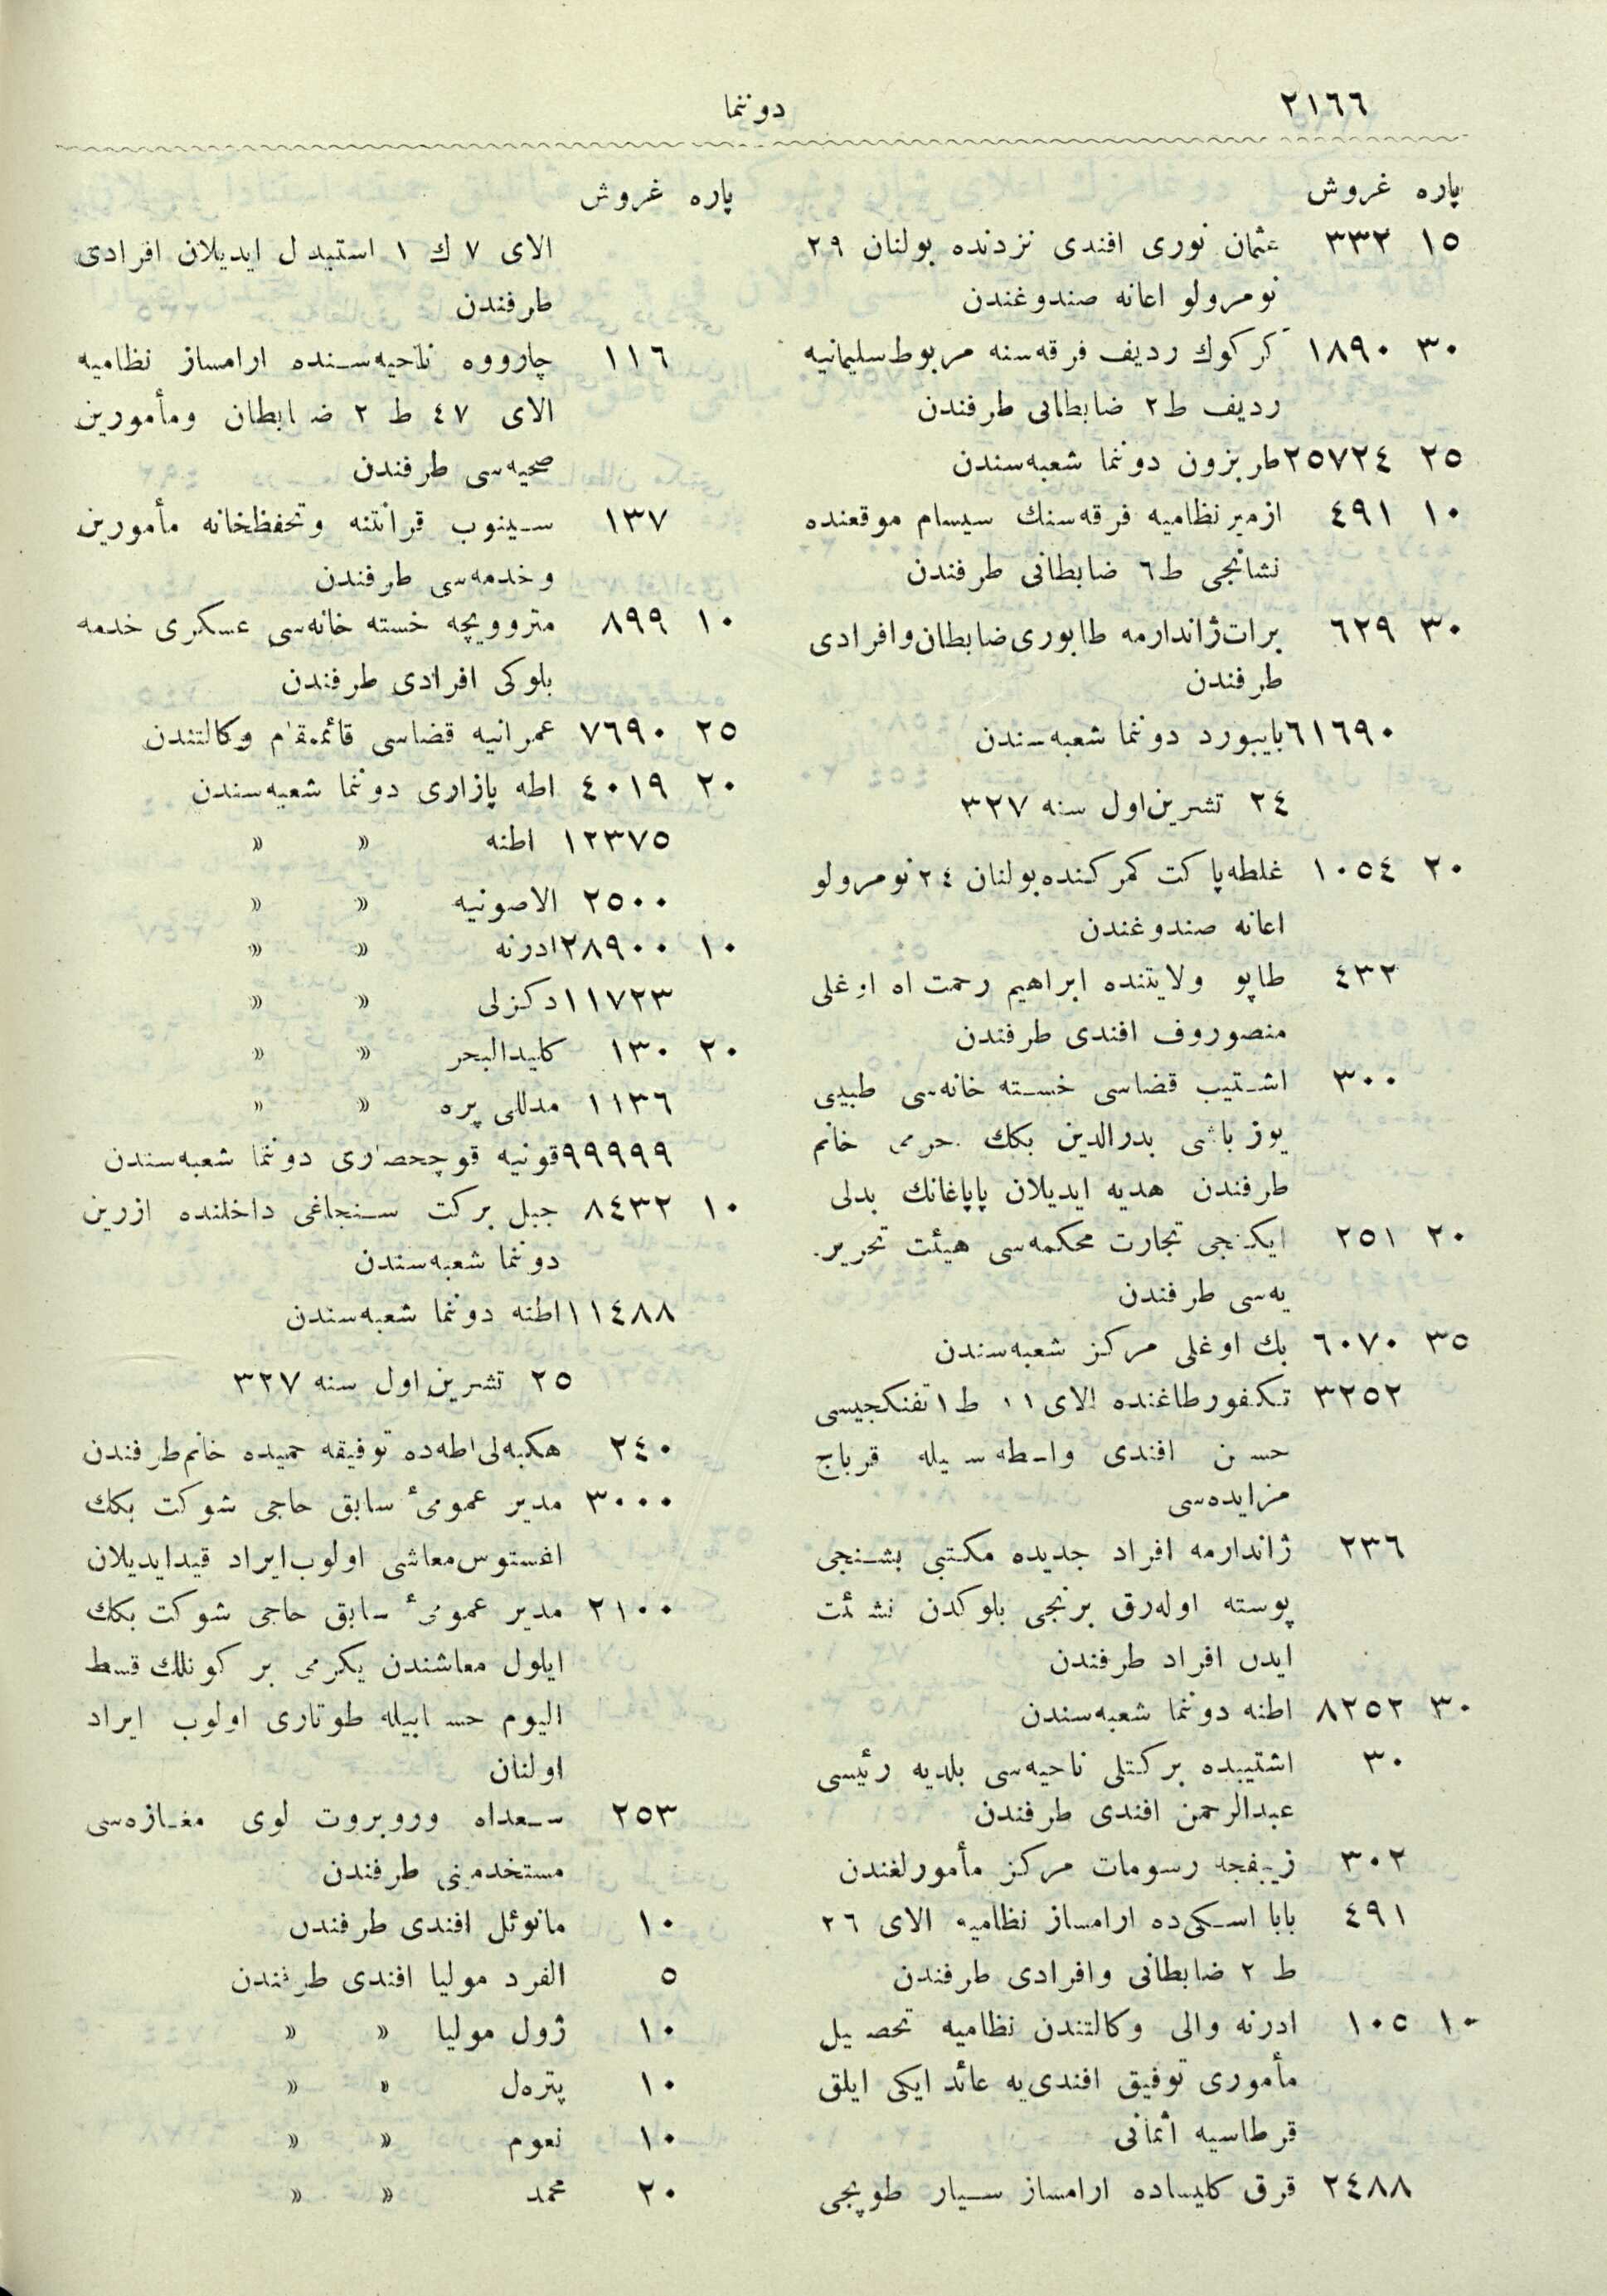 ٢١٦٦
دوننما
پاره غروش
١٥ ٣٣٢ عثمان نوری افندی نزدنده بولنان ٢٩
نومرولو اعانه صندوغندن
٣٠ ١٨٩٠ كركوك ردیف فرقه‌سنه مربوط سلیمانیه
ردیف ط٢ ضابطانی طرفندن
٢٥ ٢٥٧٢٤ طربزون دوننما شعبه‌سندن
١٠ ٤٩١ ازمیر نظامیه فرقه‌سنك سیسام موقعنده
نشانجی ط٦ ضابطانی طرفندن
٣٠ ٦٢٩ برات ژاندارمه طابوری ضابطان وافرادی
طرفندن
٦١٦٩٠ بایبورد دوننما شعبه‌سندن
٢٤ تشرین‌اول سنه ٣٢٧
٢٠ ١٠٥٤ غلطه پاكت كمركنده بولنان ٢٤ نومرولو
اعانه صندوغندن
٤٣٢ طاپو ولایتنده ابراهیم رحمت اه اوغلی
منصوروف افندی طرفندن
٣٠٠ اشتیب قضاسی خسته خانه‌سی طبیبی
یوزباشی بدرالدین بكك حرمی خانم
طرفندن هدیه ایدیلان پاپاغانك بدلی
٢٠ ٢٥١ ایكنجی تجارت محكمه‌سی هیئت تحریر
یه‌سی طرفندن
٣٥ ٦٠٧٠ بك اوغلی مركز شعبه‌سندن
٣٢٥٢ تكفورطاغنده الای ١١ ط ١ تفنكجیسی
حسن افندی واسطه‌سیله قرباج
مزایده‌سی
٢٣٦ ژاندارمه افراد جدیده مكتبی بشنجی
پوسته اوله‌رق برنجی بلوكدن نشئت
ایدن افراد طرفندن
٣٠ ٨٢٥٢ اطنه دوننما شعبه‌سندن
٣٠ اشتیبده بركتلی ناحیه‌سی بلدیه رئیسی
عبدالرحمن افندی طرفندن
٣٠٢ رسومات مركز مأمورلغندن
٤٩١ بابا اسكی‌ده ارامساز نظامیه الای ٢٦
ط ٢ ضابطانی وافرادی طرفندن
١٠ ١٠٥ ادرنه والی وكالتندن نظامیه تحصیل
مأموری توفیق افندی‌یه عائد ایكی ایلق
قرطاسیه اثمانی
٢٤٨٨ قرق كلیساده ارامساز سیار طوپجی
پاره غروش
الای ٧ ك ١ استبدل ایدیلان افرادی
طرفندن
١١٦ چارووه ناحیه‌سنده ارامساز نظامیه
الای ٤٧ ط ٢ ضابطان ومأمورین
صحیه‌سی طرفندن
١٣٧ سینوب قرانتنه وتحفظخانه مأمورین
وخدمه‌سی طرفندن
١٠ ٨٩٩ متروویچه خسته خانه‌سی عسكری خدمه
بلوكی افرادی طرفندن
٢٥ ٧٦٩٠ عمرانیه قضاسی قائمقام وكالتندن
٢٠ ٤٠١٩ اطه پازاری دوننما شعبه‌سندن
١٢٣٧٥ اطنه » »
٢٥٠٠ الاصونیه » »
١٠ ٢٨٩٠٠ ادرنه » »
١١٧٢٣ دكزلی » »
٢٠ ١٣٠ كلیدالبحر » »
١١٣٦ مدللی پره » »
٩٩٩٩٩ قونیه قوچحصاری دوننما شعبه‌سندن
١٠ ٨٤٣٢ جبل بركت سنجاغی داخلنده ازرین
دوننما شعبه‌سندن
١١٤٨٨ اطنه دوننما شعبه‌سندن
٢٥ تشرین‌اول سنه ٣٢٧
٢٤٠ هكبه‌لی اطه‌ده توفیقه حمیده خانم طرفندن
٣٠٠٠ مدیر عمومیٔ سابق حاجی شوكت بكك
اغستوس معاشی اولوب ایراد قیدایدیلان
٢١٠٠ مدیر عمومیٔ سابق حاجی شوكت بكك
ایلول معاشندن یكرمی بر كونلك قسط
الیوم حسابیله طوتاری اولوب ایراد
اولنان
٢٥٣ سعداه وروبروت لوی مغازه‌سی
مستخدمینی طرفندن
١٠ مانوئل افندی طرفندن
٥ الفرد مولیا افندی طرفندن
١٠ ژول مولیا » »
١٠ پتره‌ل » »
١٠ نعوم » »
٢٠ محمد » »